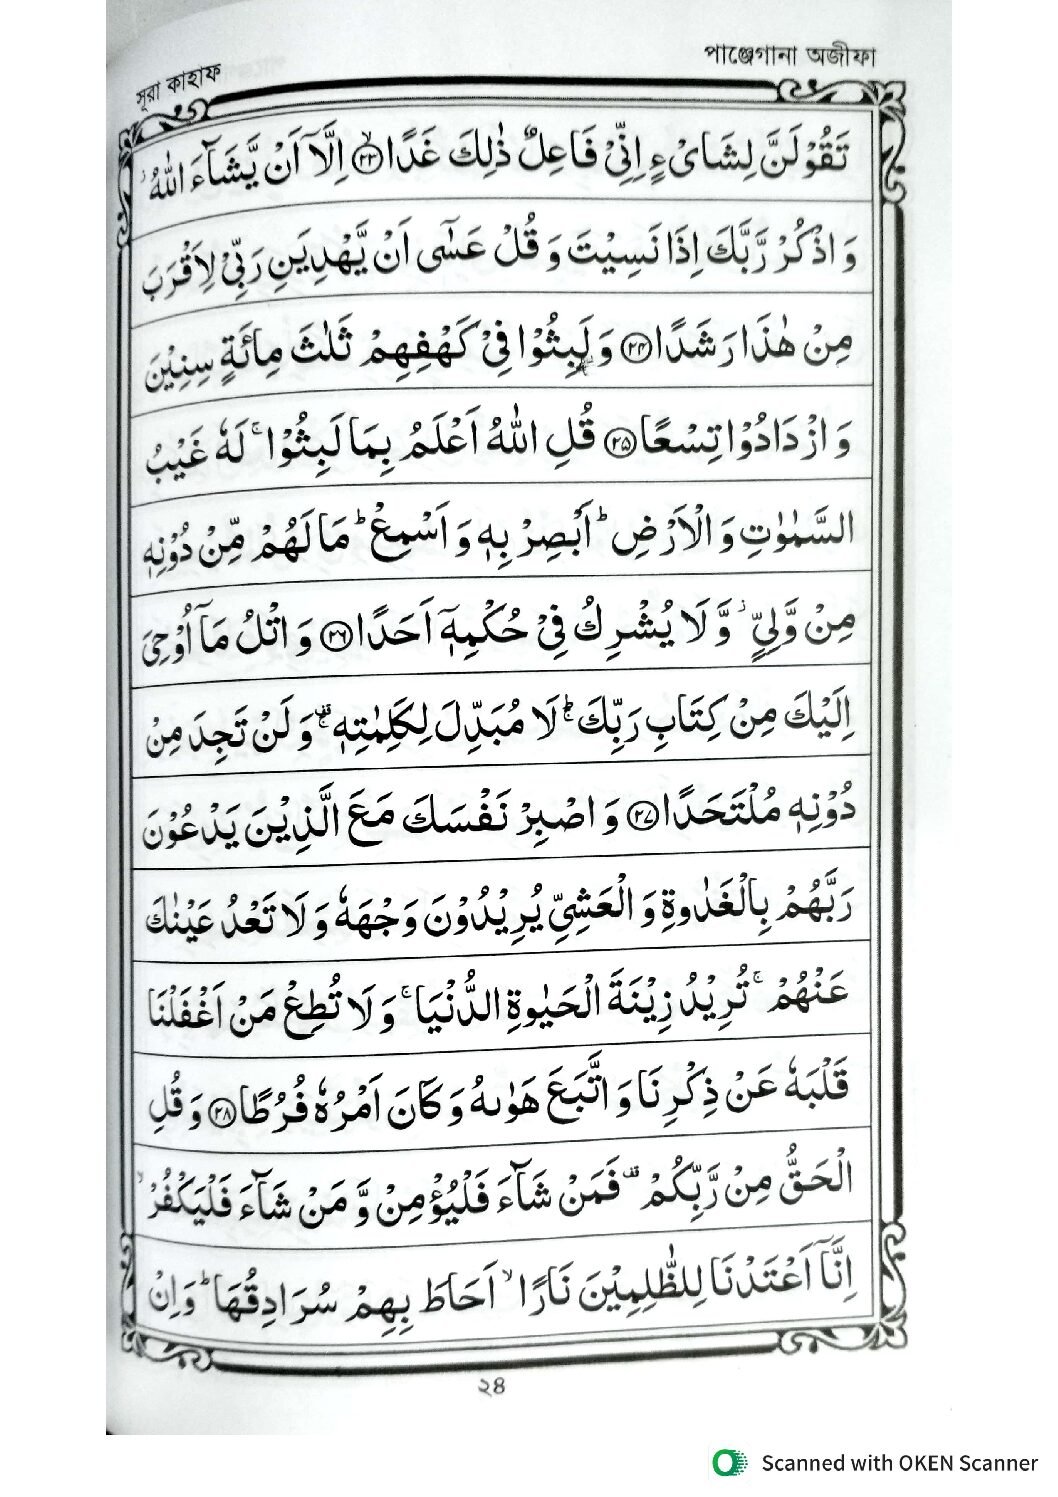 সূরা কাহাফ
পাঞ্জেগানা অজীফা
تَقُوْلَنَّ لِشَایْءٍ اِنِّیْ فَاعِلٌ ذٰلِكَ غَدًا ۙ﴿۲۳﴾ اِلَّاۤ اَنْ یَّشَآءَ اللّٰهُ ؗ
وَ اذْكُرْ رَّبَّكَ اِذَا نَسِیْتَ وَ قُلْ عَسٰۤی اَنْ یَّهْدِیَنِ رَبِّیْ لِاَقْرَبَ
مِنْ هٰذَا رَشَدًا ﴿۲۴﴾ وَ لَبِثُوْا فِیْ كَهْفِهِمْ ثَلٰثَ مِائَةٍ سِنِیْنَ
وَ ازْدَادُوْا تِسْعًا ﴿۲۵﴾ قُلِ اللّٰهُ اَعْلَمُ بِمَا لَبِثُوْا ۚ لَهٗ غَیْبُ
السَّمٰوٰتِ وَ الْاَرْضِ ؕ اَبْصِرْ بِهٖ وَ اَسْمِعْ ؕ مَا لَهُمْ مِّنْ دُوْنِهٖ
مِنْ وَّلِیٍّ ؗ وَّ لَا یُشْرِكُ فِیْ حُكْمِهٖۤ اَحَدًا ﴿۲۶﴾ وَ اتْلُ مَاۤ اُوْحِیَ
اِلَیْكَ مِنْ كِتَابِ رَبِّكَ ؕۚ لَا مُبَدِّلَ لِكَلِمٰتِهٖ ۫ۚ وَ لَنْ تَجِدَ مِنْ
دُوْنِهٖ مُلْتَحَدًا ﴿۲۷﴾ وَ اصْبِرْ نَفْسَكَ مَعَ الَّذِیْنَ یَدْعُوْنَ
رَبَّهُمْ بِالْغَدٰوةِ وَ الْعَشِیِّ یُرِیْدُوْنَ وَجْهَهٗ وَ لَا تَعْدُ عَیْنٰكَ
عَنْهُمْ ۚ تُرِیْدُ زِیْنَةَ الْحَیٰوةِ الدُّنْیَا ۚ وَ لَا تُطِعْ مَنْ اَغْفَلْنَا
قَلْبَهٗ عَنْ ذِكْرِنَا وَ اتَّبَعَ هَوٰىهُ وَ كَانَ اَمْرُهٗ فُرُطًا ﴿۲۸﴾ وَ قُلِ
الْحَقُّ مِنْ رَّبِّكُمْ ۫ فَمَنْ شَآءَ فَلْیُؤْمِنْ وَّ مَنْ شَآءَ فَلْیَكْفُرْ ۙ
اِنَّاۤ اَعْتَدْنَا لِلظّٰلِمِیْنَ نَارًا ۙ اَحَاطَ بِهِمْ سُرَادِقُهَا ؕ وَ اِنْ
২৪
Scanned with OKEN Scanner